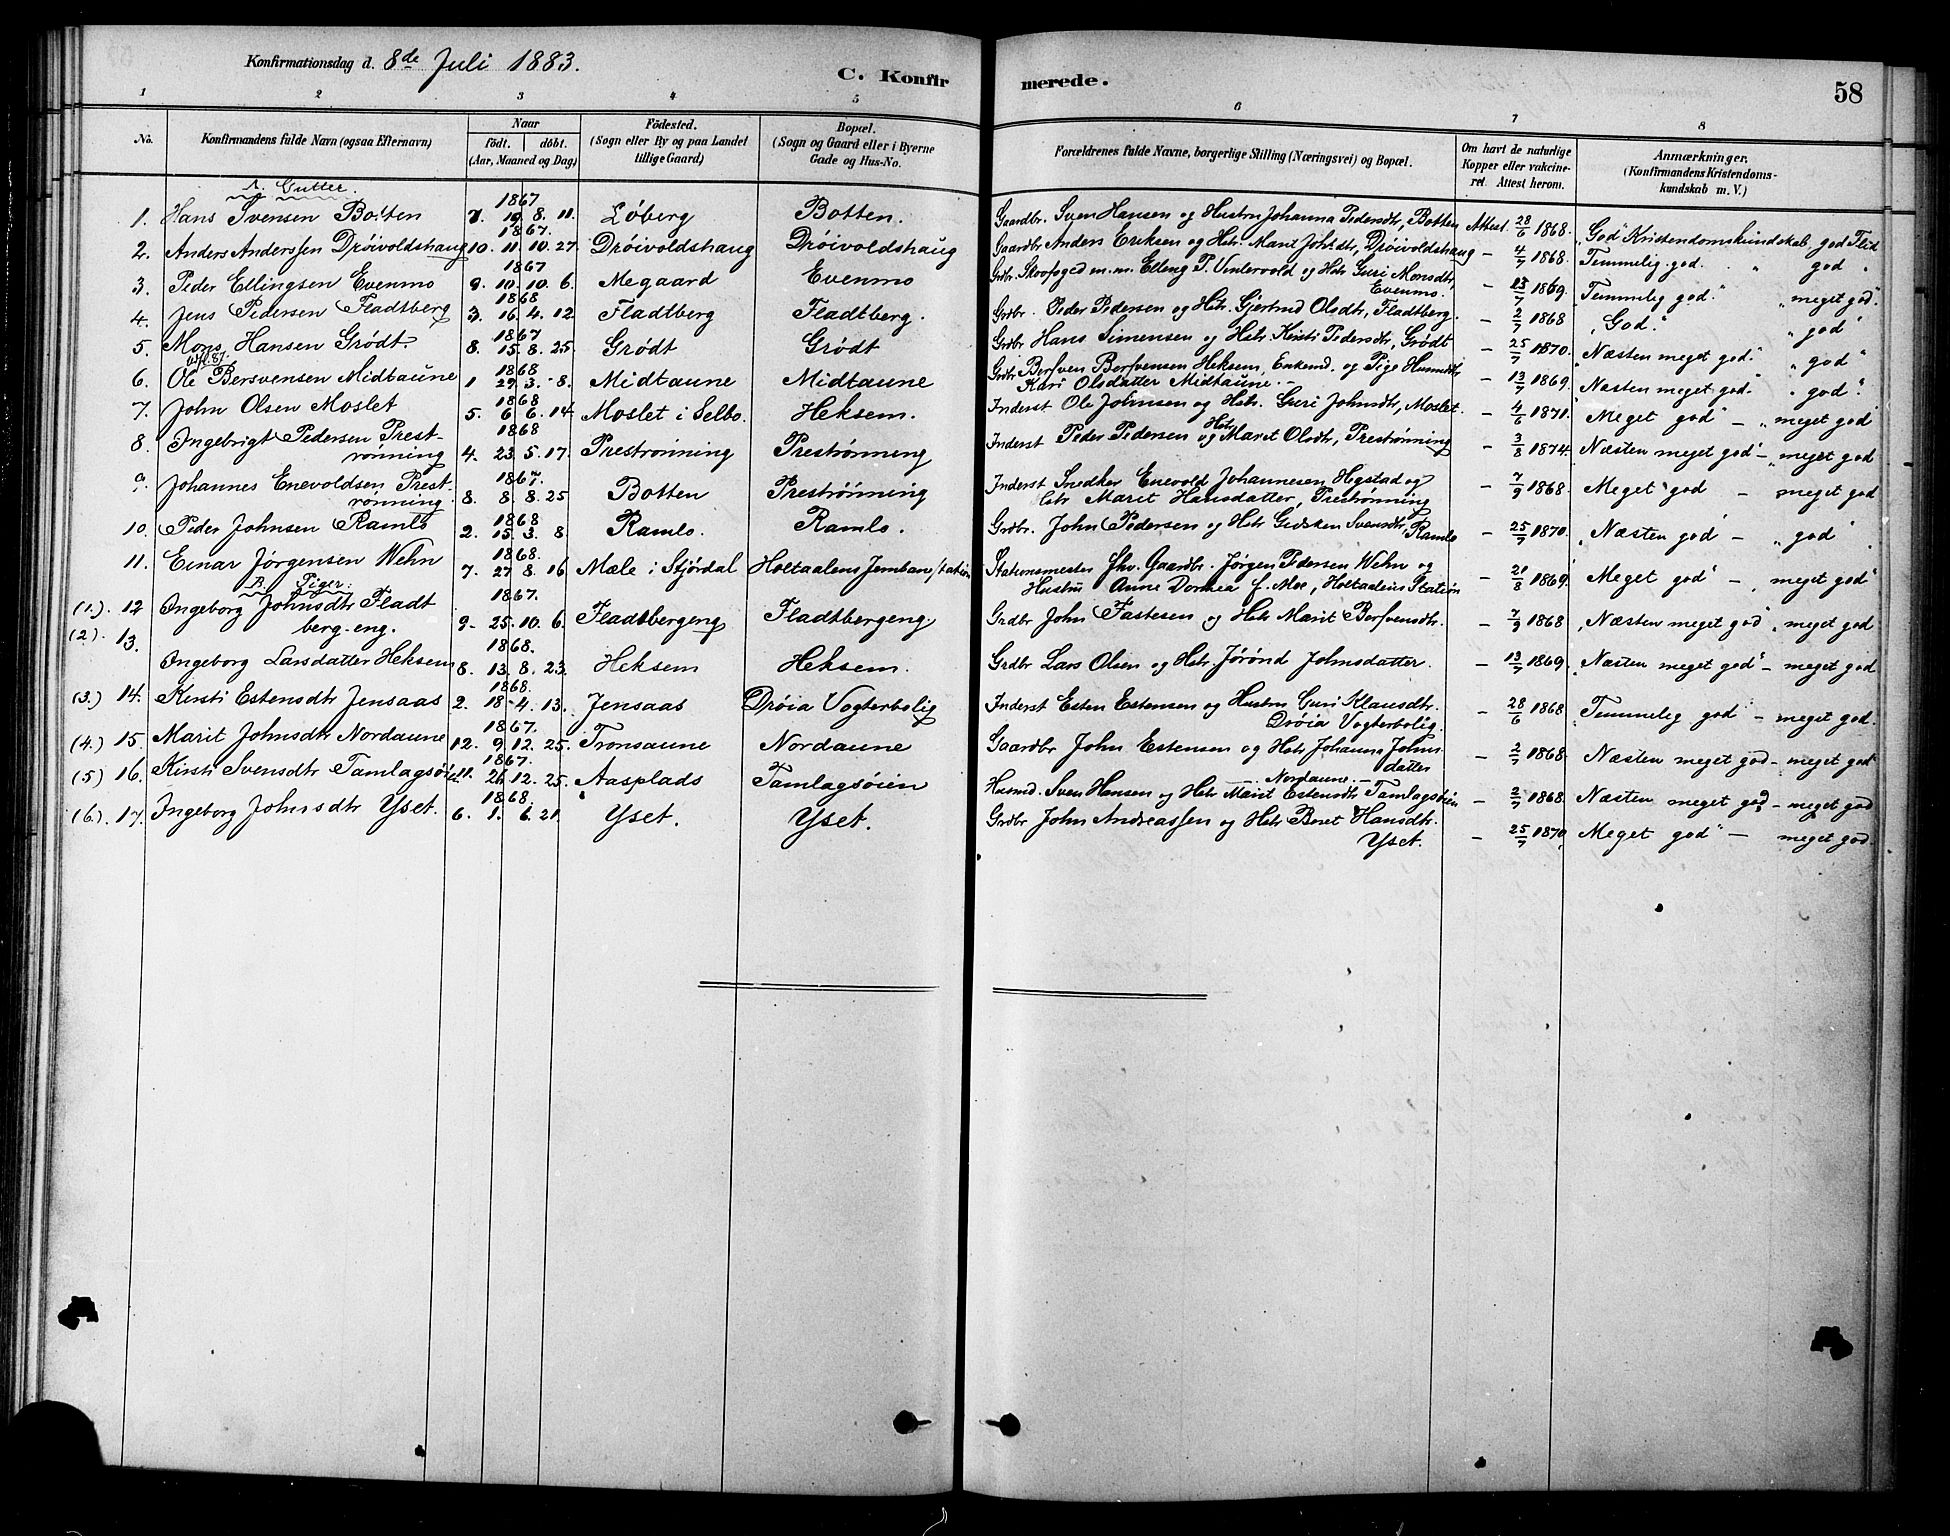 Konfirmationsdag d. 8de Juli 1883.
C. Konfirmerede.
58
1 2 3 4 5 6 7 8
No.
Konfirmandens fulde Navn (ogsaa Efternavn)
Naar
födt. | döbt.
(Aar, Maaned og Dag)
Födested.
(Sogn eller By og paa Landet
tillige Gaard)
Bopæl.
(Sogn og Gaard eller i Byerne
Gade og Hus-No.
Forældrenes fulde Navne, borgerlige Stilling (Næringsvei) og Bopæl.
Om havt de naturlige
Kopper eller vakcine-
ret. Attest herom.
Anmærkninger.
(Konfirmandens Kristendoms-
kundskab m. V.)
A. Gutter.
1. Hans Svensen Botten 1867 7. 19. 8. 11. Löberg Botten. Gaardbr. Sven Hansen og Hustru Johanna Pedersdtr, Botten Attest. 28/6 1868. "God" Kristendomskundskab, god Flid
2. Anders Anderssen Dröivoldshaug 1867. 10. 11. 10. 27. Dröivoldshaug Dröivoldshaug Gaardbr Anders Eriksen og Hstr. Marit Johsdtr, Dröivoldshaug – 4/7 1868. Temmelig god. " god "
3. Peder Ellingsen Evenmo 1867 9. 10. 10. 6. Megaard Evenmo Grdbr. Skovfoged m. m. Elling P. Vintervold og Hstr Guri Monsdtr,
Evenmo. – 13/7 1869. "Temmelig god." "meget god".
4. Jens Pedersen Fladtberg 1868 3. 16. 4. 12. Fladtberg Fladtberg. Grdbr. Peder Pedersen og Hstr. Gjertrud Olsdtr, Fladtberg. – 2/7 1868 "God." "god"
5. Mons Hansen Grödt. 1867 8. 15. 8. 25. Grödt Grödt Grdbr Hans Simensen og Hstr. Kirsti Pedersdtr, Grödt – 25/7 1870. "Næsten meget god." "god"
6. Ole Bersvensen Midtaune 1868 1 29. 3. 8. Midtaune Midtaune Grdbr Berfven Berfvensen Heksem, Enkemd. og Pige
Kari Olsdatter Midtaune. – 13/7 1869. "Næsten meget god." "god".
7. John Olsen Moslet 1868 5. 6 6. 14. Moslet i Selbo. Heksem. Inderst Ole Johnsen og Hstr. Guri Johnsdtr, Moslet. – 4/6 1871. "Meget god" – "meget god"
8. Ingebrigt Pedersen Prest-
rönning 1868 4. 23. 5. 17. Preströnning Preströnning Inderst Peder Pedersen og Hstr Maret Olsdtr, Preströnning – 3/8 1874. "Næsten meget god" – "meget god
9. Johannes Enevoldsen Prest-
rönning. 1867. 8 8. 8. 25 Botten Preströnning Inderst Snedker Enevold Johannesen Hegstad og
Hstr Marit Hansdatter, Preströnning – 7/9 1868. "Meget god – meget god
10. Peder Johnsen Ramlo 1868 2. 15. 3. 8. Ramlo. Ramlo. Grdbr. John Pedersen og Hstr Gidsken Svensdtr, Ramlo – 25/7 1870. "Næsten god" – "god"
11. Einar Jørgensen Wehn 1868. 7. 27 8. 16. Mæle i Stjördal Holtaalens Jernbanestation Stationsmester fhv. Gaardbr. Jørgen Pedersen Wehn og
Hustru Anne Dorthea f. Moe, Holtaalens Station – 21/8 1869. "Meget god" – meget god"
B. Piger:
(1.) 12 Ingeborg Johnsdtr Fladt
berg-eng. 1867. 9. 25. 10. 6. Fladtbergeng Fladtbergeng Grdbr John Fastesen og Hstr Marit Berfvensdtr. – 7/9 1868 "Næsten meget god" "meget god
(2). 13. Ingeborg Larsdatter Heksem 1868. 8. 13. 8. 23. Heksem Heksem. Grdbr Lars Olsen og Hstr. Jörönd Johnsdatter. – 13/7 1869. "Næsten meget god" – meget god
(3.) 14. Kirsti Estensdtr Jensaas 1868. 2. 18. 4. 13. Jensaas Dröia Vogterbolig Inderst Esten Estensen og Hustru Guri Klausdtr.
Dröia Vogterbolig. – 28/6 1868 "Temmelig god – meget god.
(4.) 15. Marit Johnsdtr Nordaune 1867. 12. 9. 12. 25. Tronsaune Nordaune Gaardbr John Estensen og Hstr Johanna Johns-
datter
– Nordaune. – – 2/7 1868 Næsten meget god – meget god
(5.) 16. Kirsti Svensdtr Tamlagsöien 1867. 11. 26. 12. 25. Aasplads Tamlagsöien Husmd. Sven Hansen og Hstr Marit Estensdtr Tamlagsöien – 2/7 1868. Næsten meget god – meget god
(6.) 17. Ingeborg Johnsdtr Yset. 1868. 6. 1. 6. 21. Yset. Yset. Grdbr John Andreassen og Hstr Beret Hansdtr.
Yset. – 25/7 1870. Meget god" – meget god